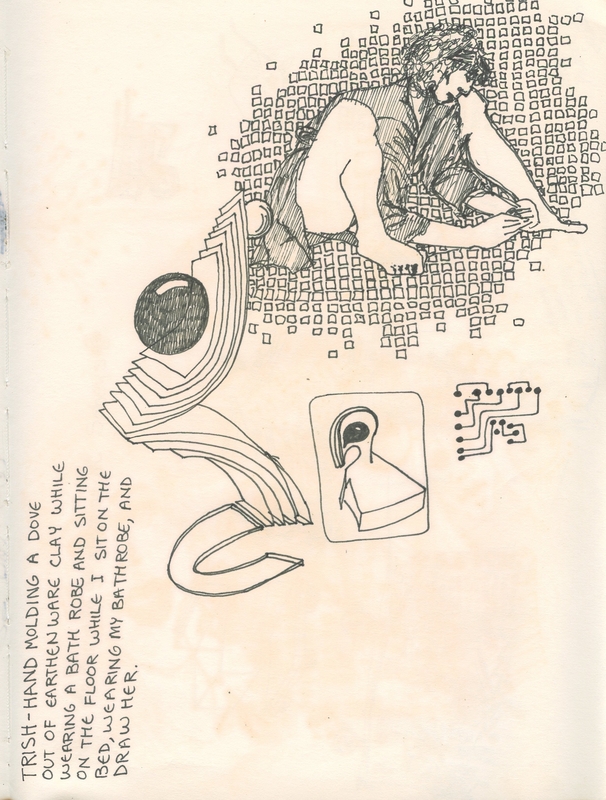 TRISH-HAND MOLDING A DOVE
OUT OF EARTHENWARE CLAY WHILE
WEARING A BATH ROBE AND SITTING
ON THE FLOOR WHILE I SIT ON THE
BED, WEARING MY BATHROBE, AND
DRAW HER.